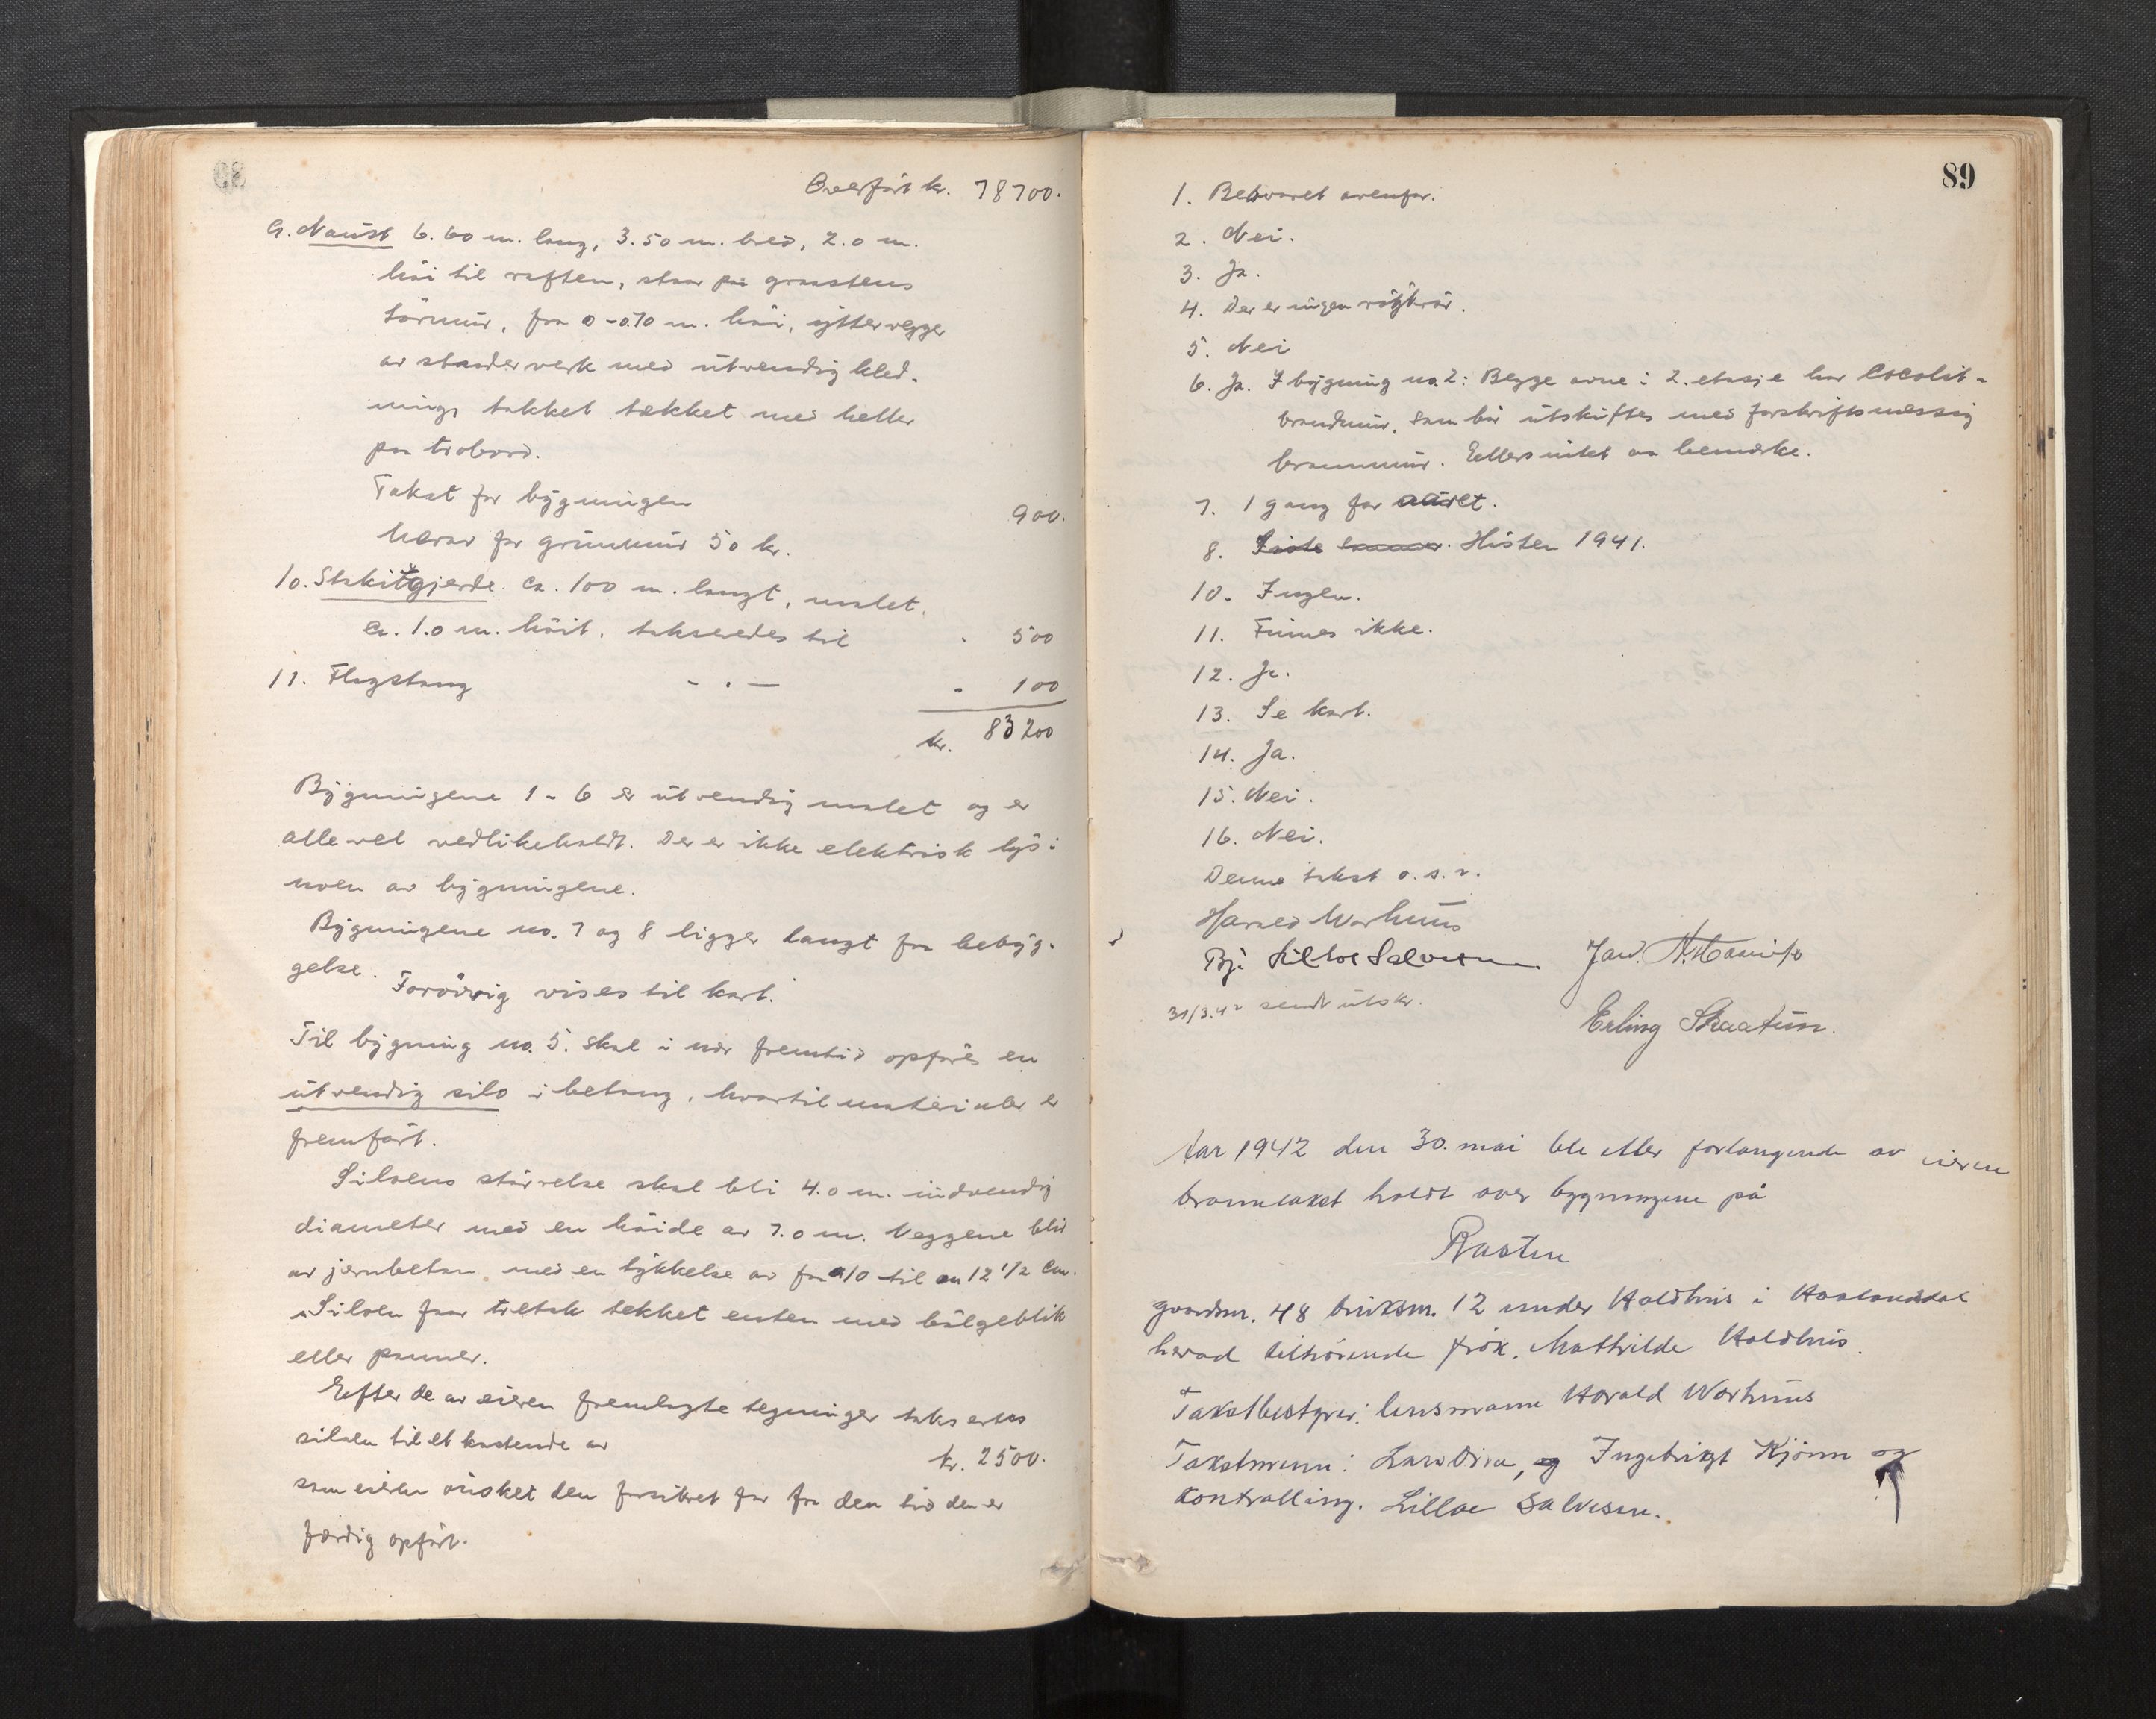 Overført kr. 78700.
9. Naust 6.60 m. lang, 3.50 m. bred, 2.0 m.
høi til raften, staar paa graastens
tørmur, fra 0-0.70 m. høi, yttervegger
av stenderverk med utvendig kled-
ning, takket tækket med heller
paa trobord.
Takst for bygningen 900.
Herav for grunmur 50 kr.
10. Stakitgjerde ca. 100 m. langt, malet,
ca. 1.0 m. høit, takseredes til " 500
11. Flagstang - " - " 100
kr. 83200
Bygningene 1-6 er utvendig malet og er
alle vel vedlikeholdt. Der er ikke elektrisk lys i
noen av bygningene.
Bygningene no. 7 og 8 ligger langt fra bebyg-
gelse. Forøvrig vises til kart.
Til bygning no. 5. skal i nær fremtid opføres en
utvendig silo i betong, hvortil materialer er
fremført.
Siloens størrelse skal bli 4.0 m. indvendig
diameter med en høide av 7.0 m. Veggene blir
av jernbeton med en tykkelse av fra 10 til 12 1/2 cm.
Siloen faar tretak tekket enten med bølgeblik
eller panner.
Efter de av eieren fremlagte tegninger takseres
siloen til et kostende av kr. 2500.
som eieren ønsket den forsikret for fra den tid den er
færdig opført.
89
1. Besvaret ovenfor.
2. Nei.
3. Ja.
4. Der er ingen røykrør.
5. Nei
6. Ja. I bygning no. 2: Begge ovne i 2. etasje har Cocolit-
brandmur, som bør utskiftes med forskriftsmessig
brannmur. Ellers intet aa bemerke.
7. 1 gang for aaret.
8. Siste sommer. Høsten 1941.
10. Ingen.
11. Finnes ikke.
12. Ja.
13. Se kart.
14. Ja.
15. Nei.
16. Nei.
Denne takst o.s.v.
Harald Warhuus
Lilloe Salvesen Jan.
31/3.42 sendt utskr.
Erling Skaatun.
Aar 1942 den 30. mai ble etter forlangende av eieren
branntakst holdt over bygningene på
Rasten
gaardsnr. 48 bruksnr. 12 under Holdhus i Haalandsdal
herad tilhørende frøk. Mathilde Holdhus.
Takstbestyrer: lensmann Harald Warhuus
Takstmenn: Lars Diva, og Ingebrigt Kjønn og
kontrolling. Lilloe Salvesen.